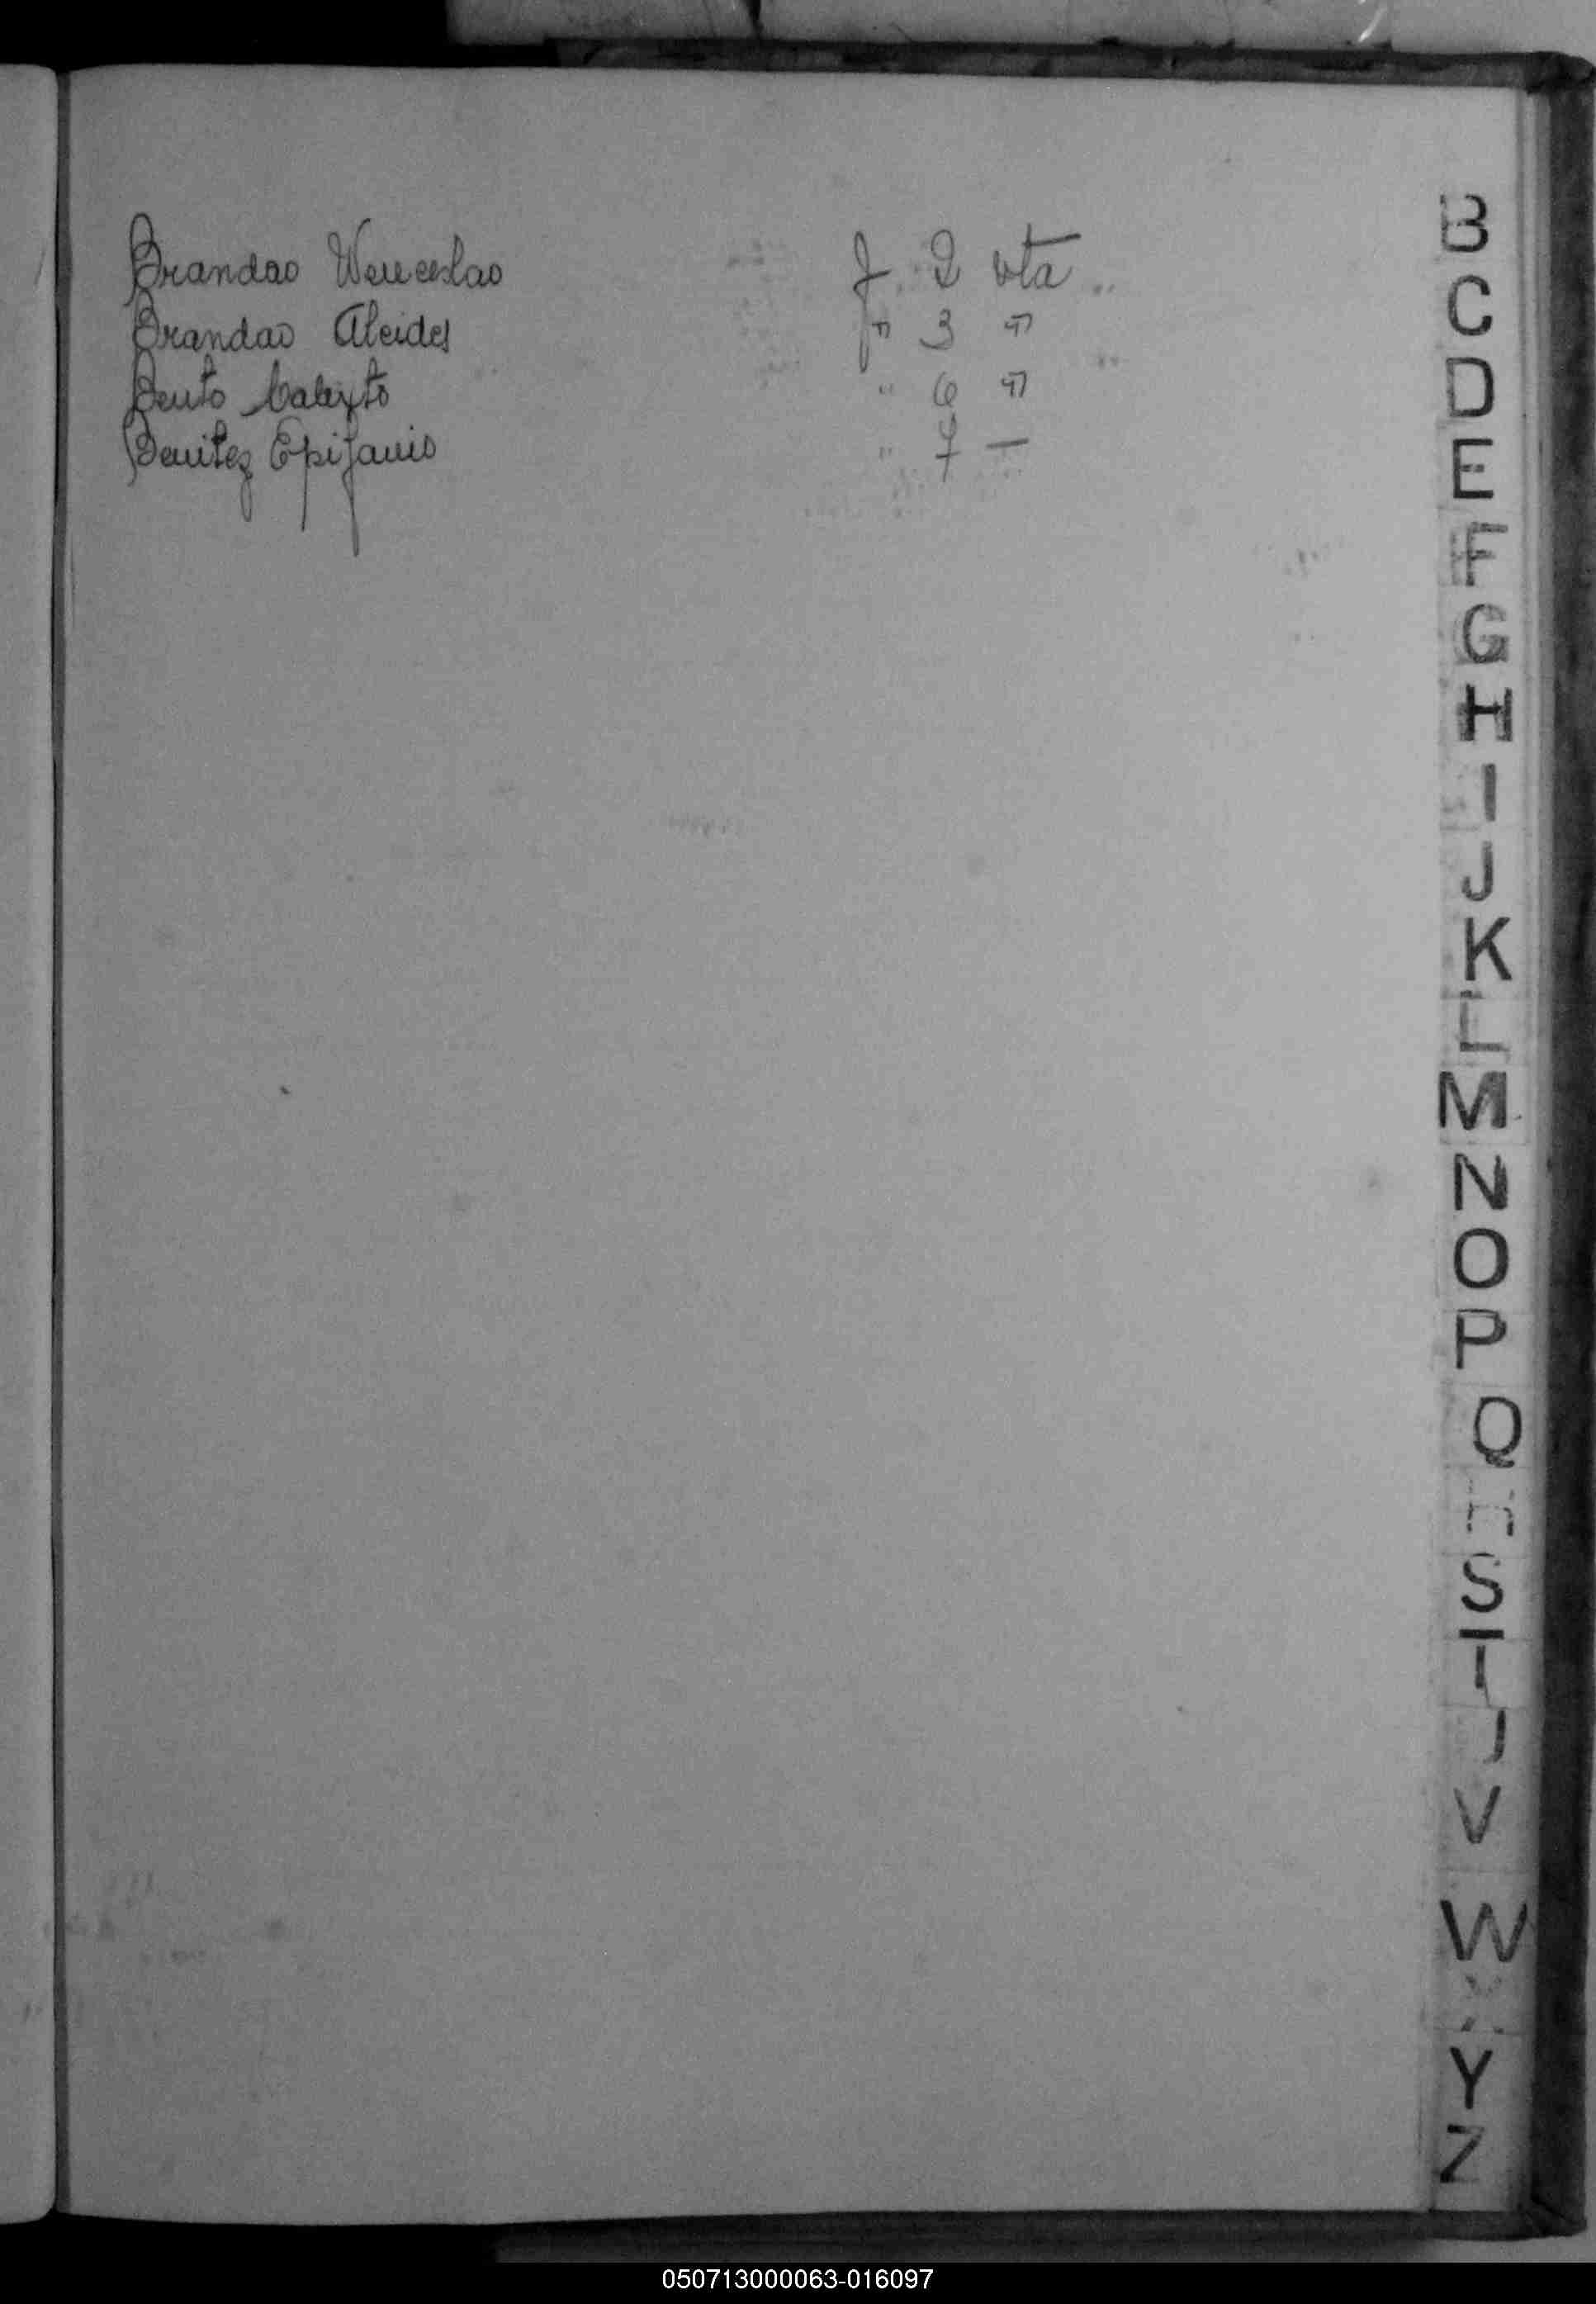 Brandao Wenceslao f. 2 vta
Brandao Alcides " 3 "
Bento Calixto " 6 "
Benitez Epifanio " 7 —
B
C
D
E
F
G
H
I
J
K
L
M
N
O
P
Q
S
T
V
W
Y
Z
050713000063-016097